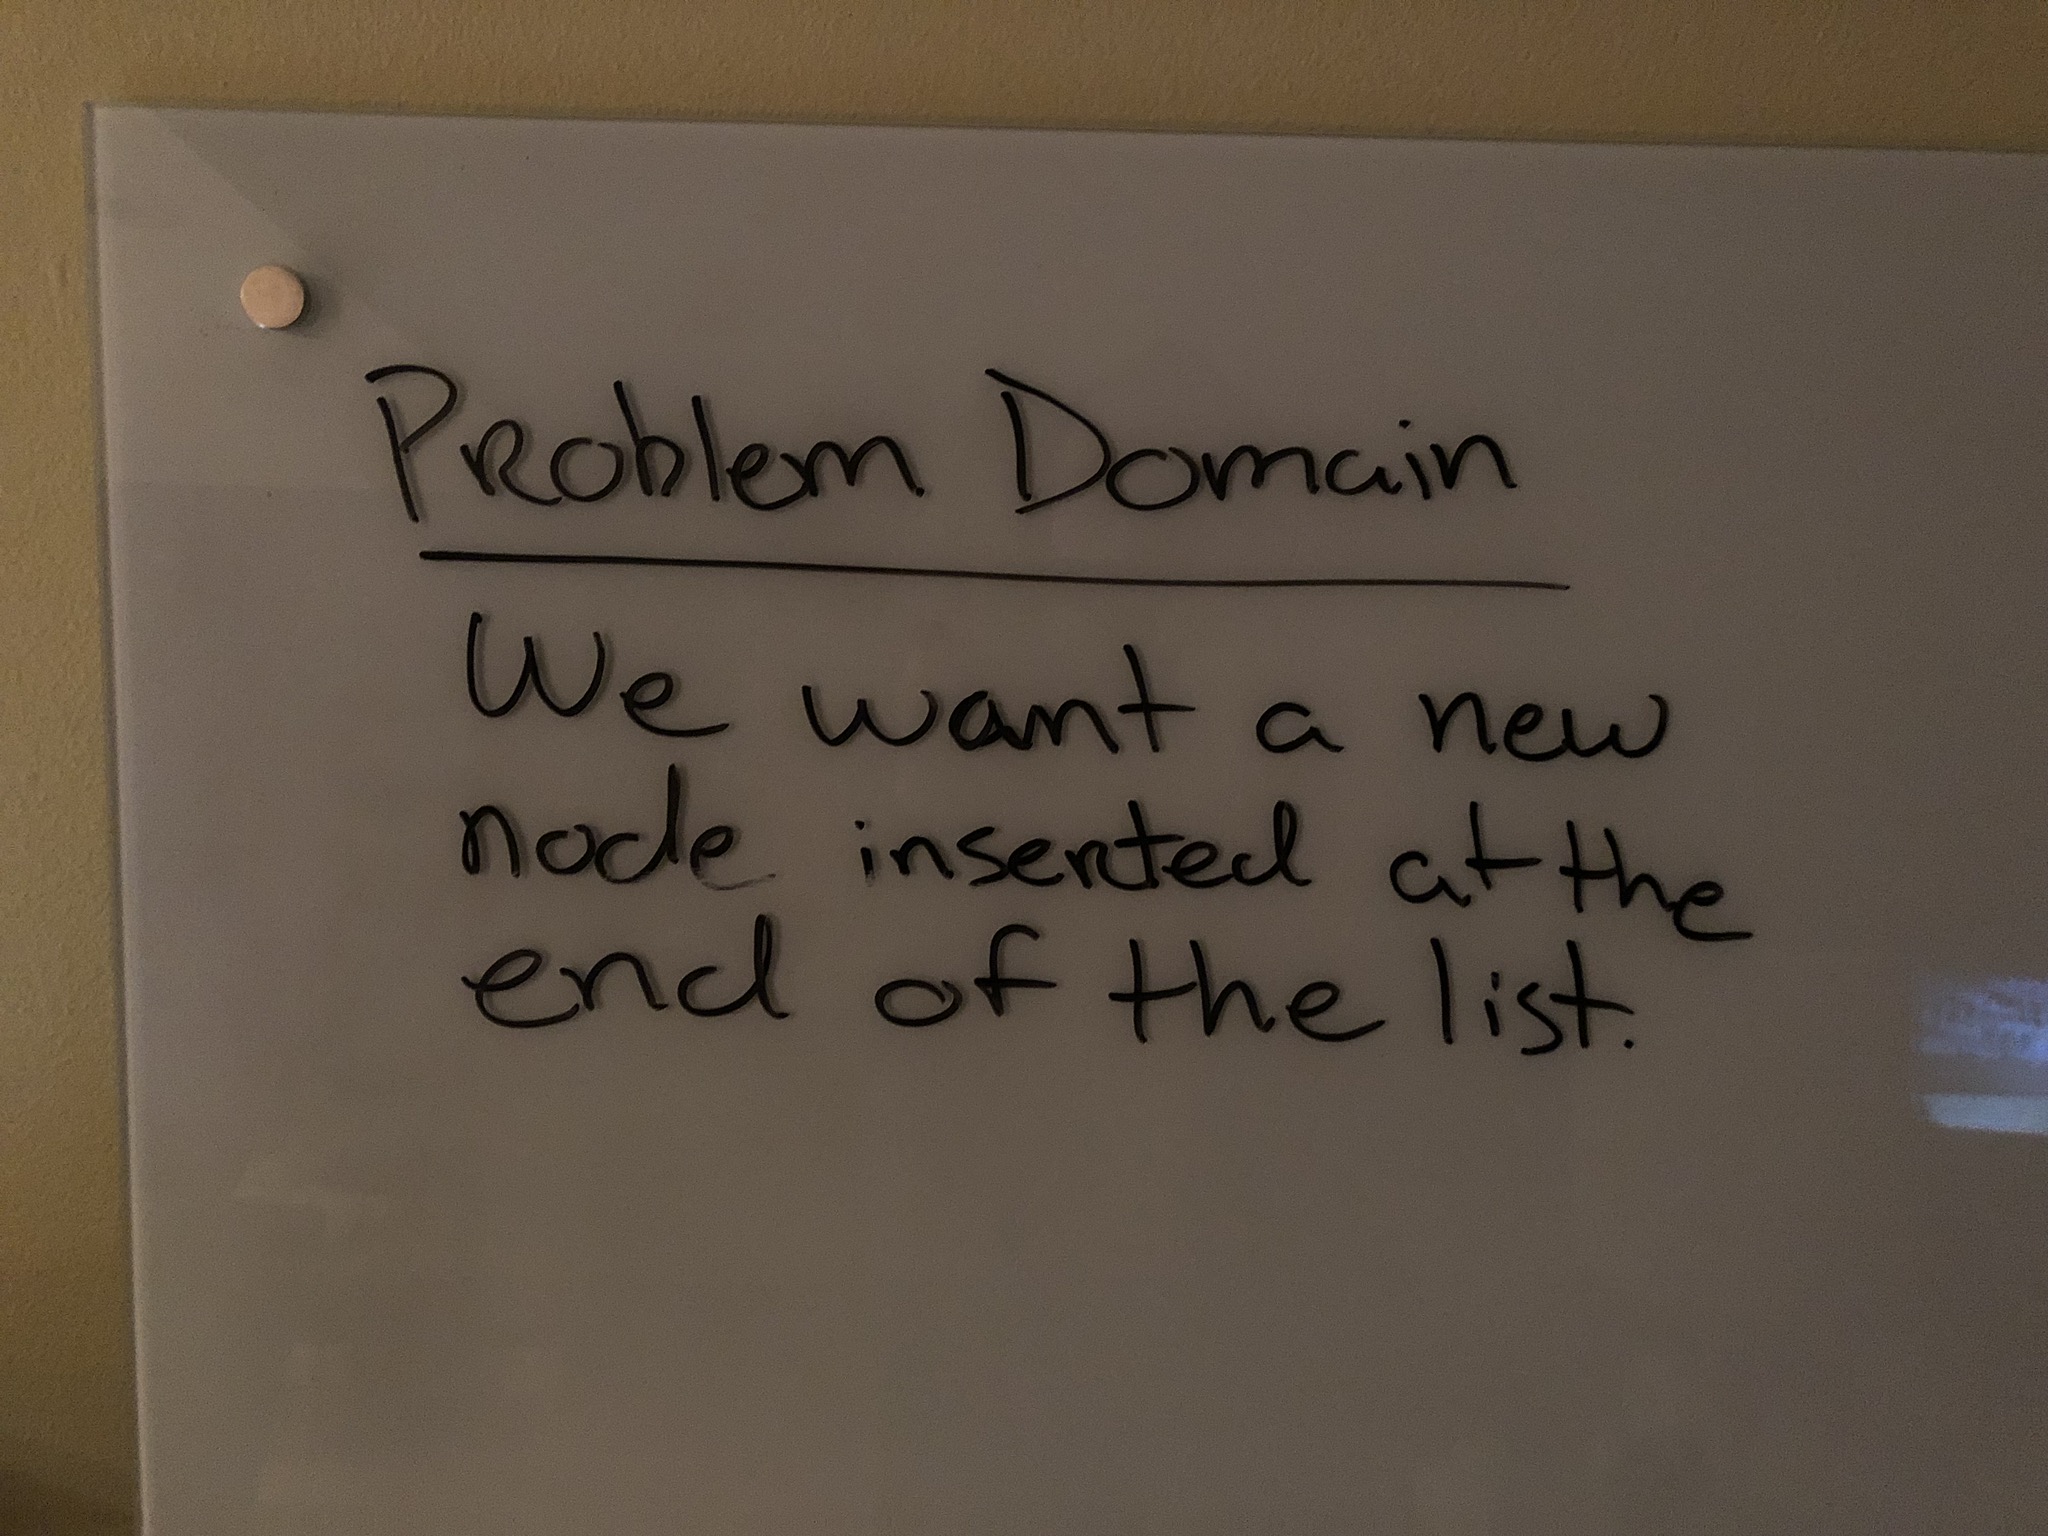 Problem Domain
We want a new
node inserted at the
end of the list.